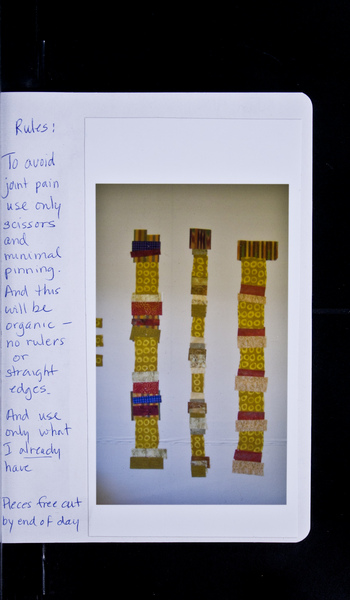 Rules:
To avoid
joint pain
use only
scissors
and
minimal
pinning.
And this
will be
organic —
no rulers
or
straight
edges.
And use
only what
I already
have
Pieces free cut
by end of day